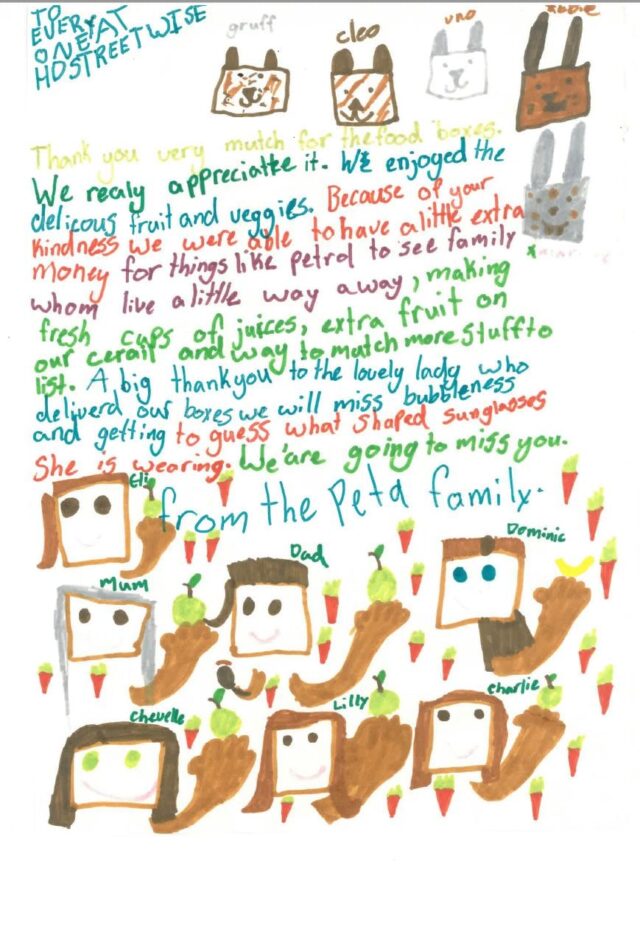 TO
EVERY
ONE AT
HDSTREETWISE
gruff
cleo
uno
Thank you very mutch for the food boxes.
We realy appreciatte it. We enjoyed the
delicous fruit and veggies. Because of your
kindness we were able to have a little extra
money for things like petrol to see family
whom live a little way away, making
fresh cups of juices, extra fruit on
our cerail and way to mutch more stuff to
list. A big thankyou to the lovely lady who
deliverd our boxes we will miss bubbleness
and getting to guess what shaped sunglasses
She is wearing. We'are going to miss you.
from the Peta family.
Eli
Mum
Dad
Dominic
Chevelle
Lilly
Charlie